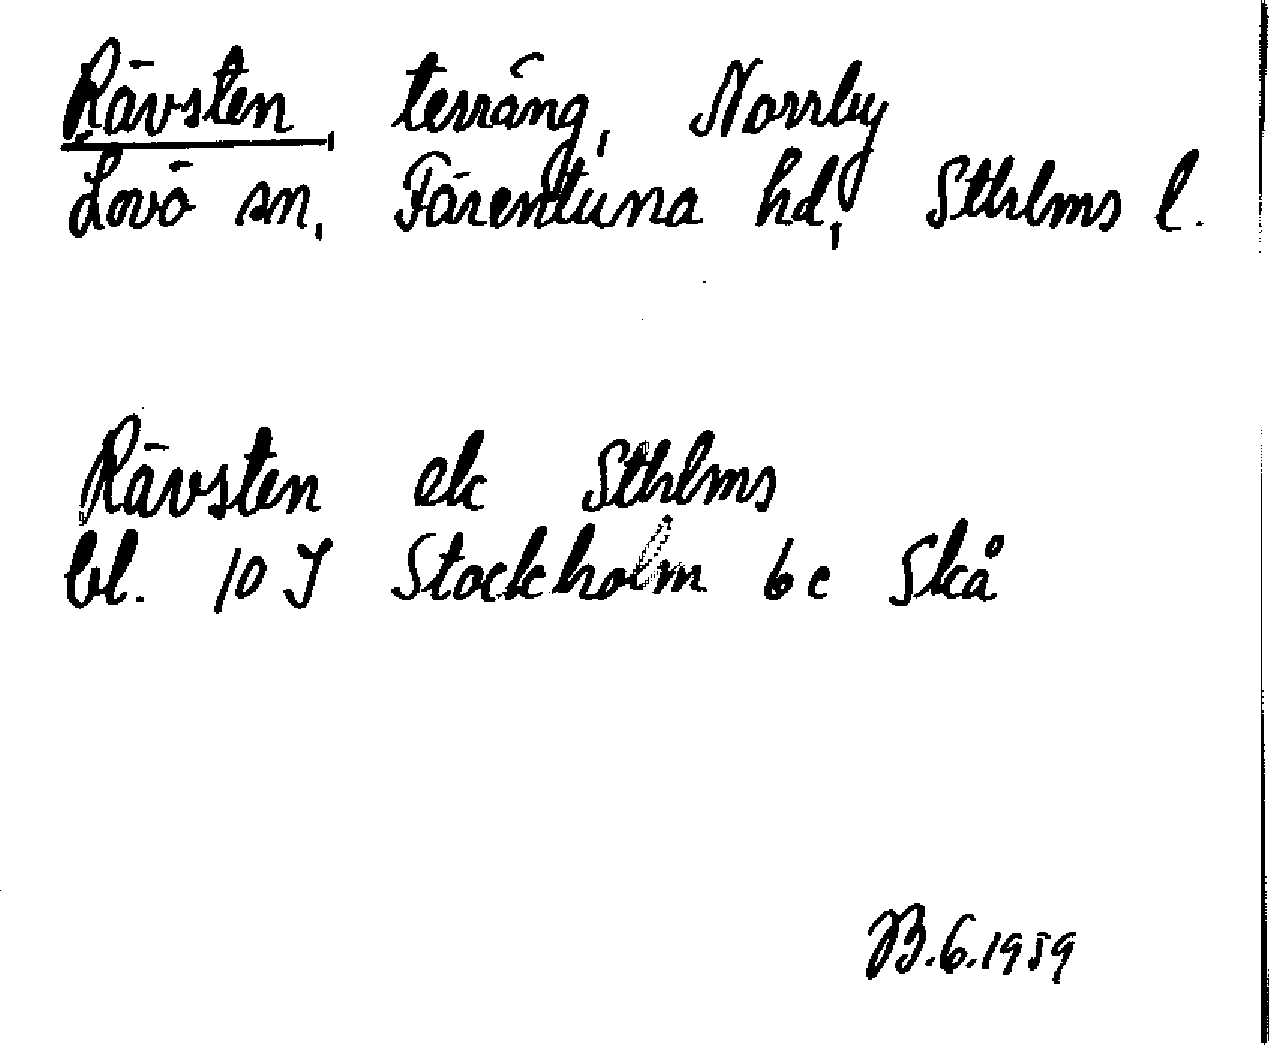 Rävsten, terräng, Norrby
Lovö sn, Färentuna hd, Sthlms l.
Rävsten ek Sthlms
bl. 10 I Stockholm 6 c Skå
B.G. 1959